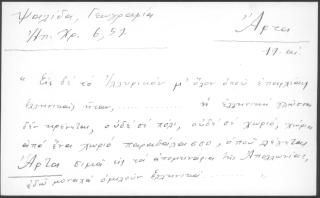 Ψαλίδα, Γεωγραφία
Ἠπ. Χρ. 6, 57.
Ἄρτα
19. αἰ
" Εἰς δὲ τὸ Ἰλλυρικὸν μ' ὅλον ὁποὺ ἐπαρχίαι
ἑλληνικαὶ ἦταν, .......... ἡ ἑλληνικὴ γλῶσσα
δὲν κρένεται, οὐδὲ σὲ πόλι, οὐδὲ σὲ χωριό, χώρια
ἀπὸ ἕνα χωριὸ παραθαλάσσιο, ὁποὺ λέγεται
Ἄρτα σιμὰ εἰς τὰ ἀπομεινάρια τῆς Ἀπολλωνίας,
ἐδῶ μοναχὰ ὁμιλοῦν ἑλληνικά.